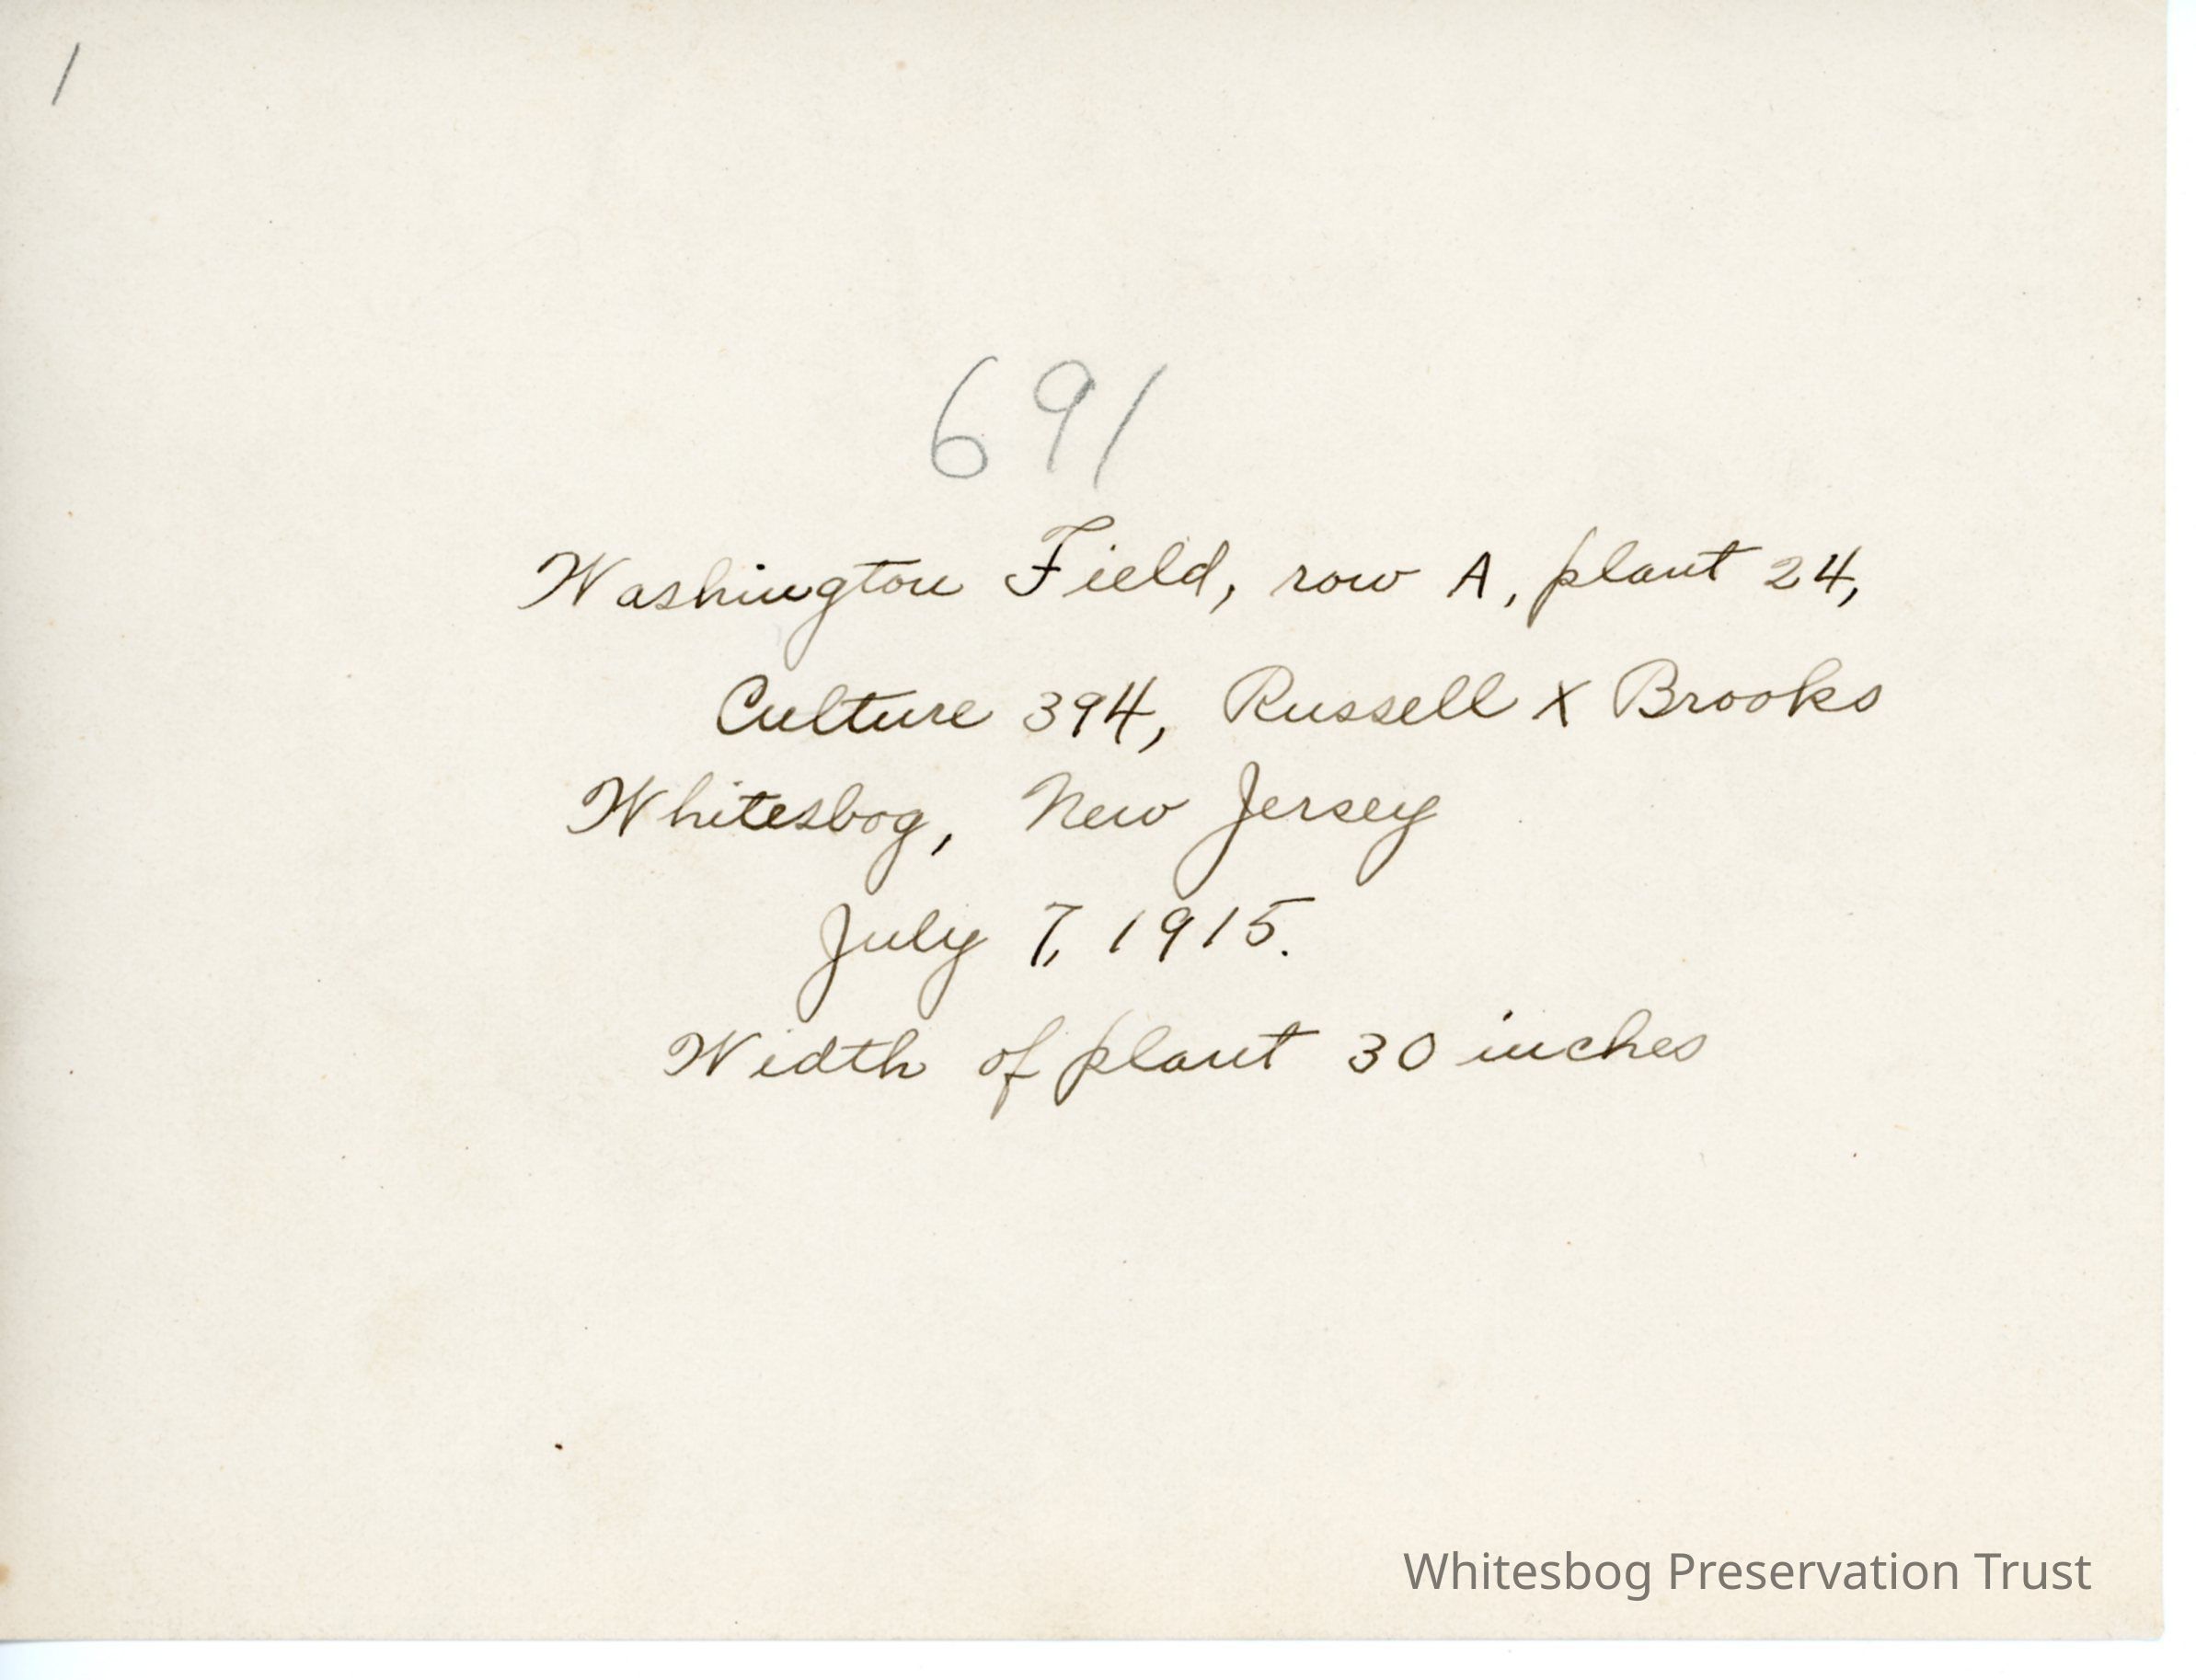 1
691
Washington Field, row A, plant 24,
Culture 394, Russell X Brooks
Whitesbog, New Jersey
July 7, 1915.
Width of plant 30 inches
Whitesbog Preservation Trust